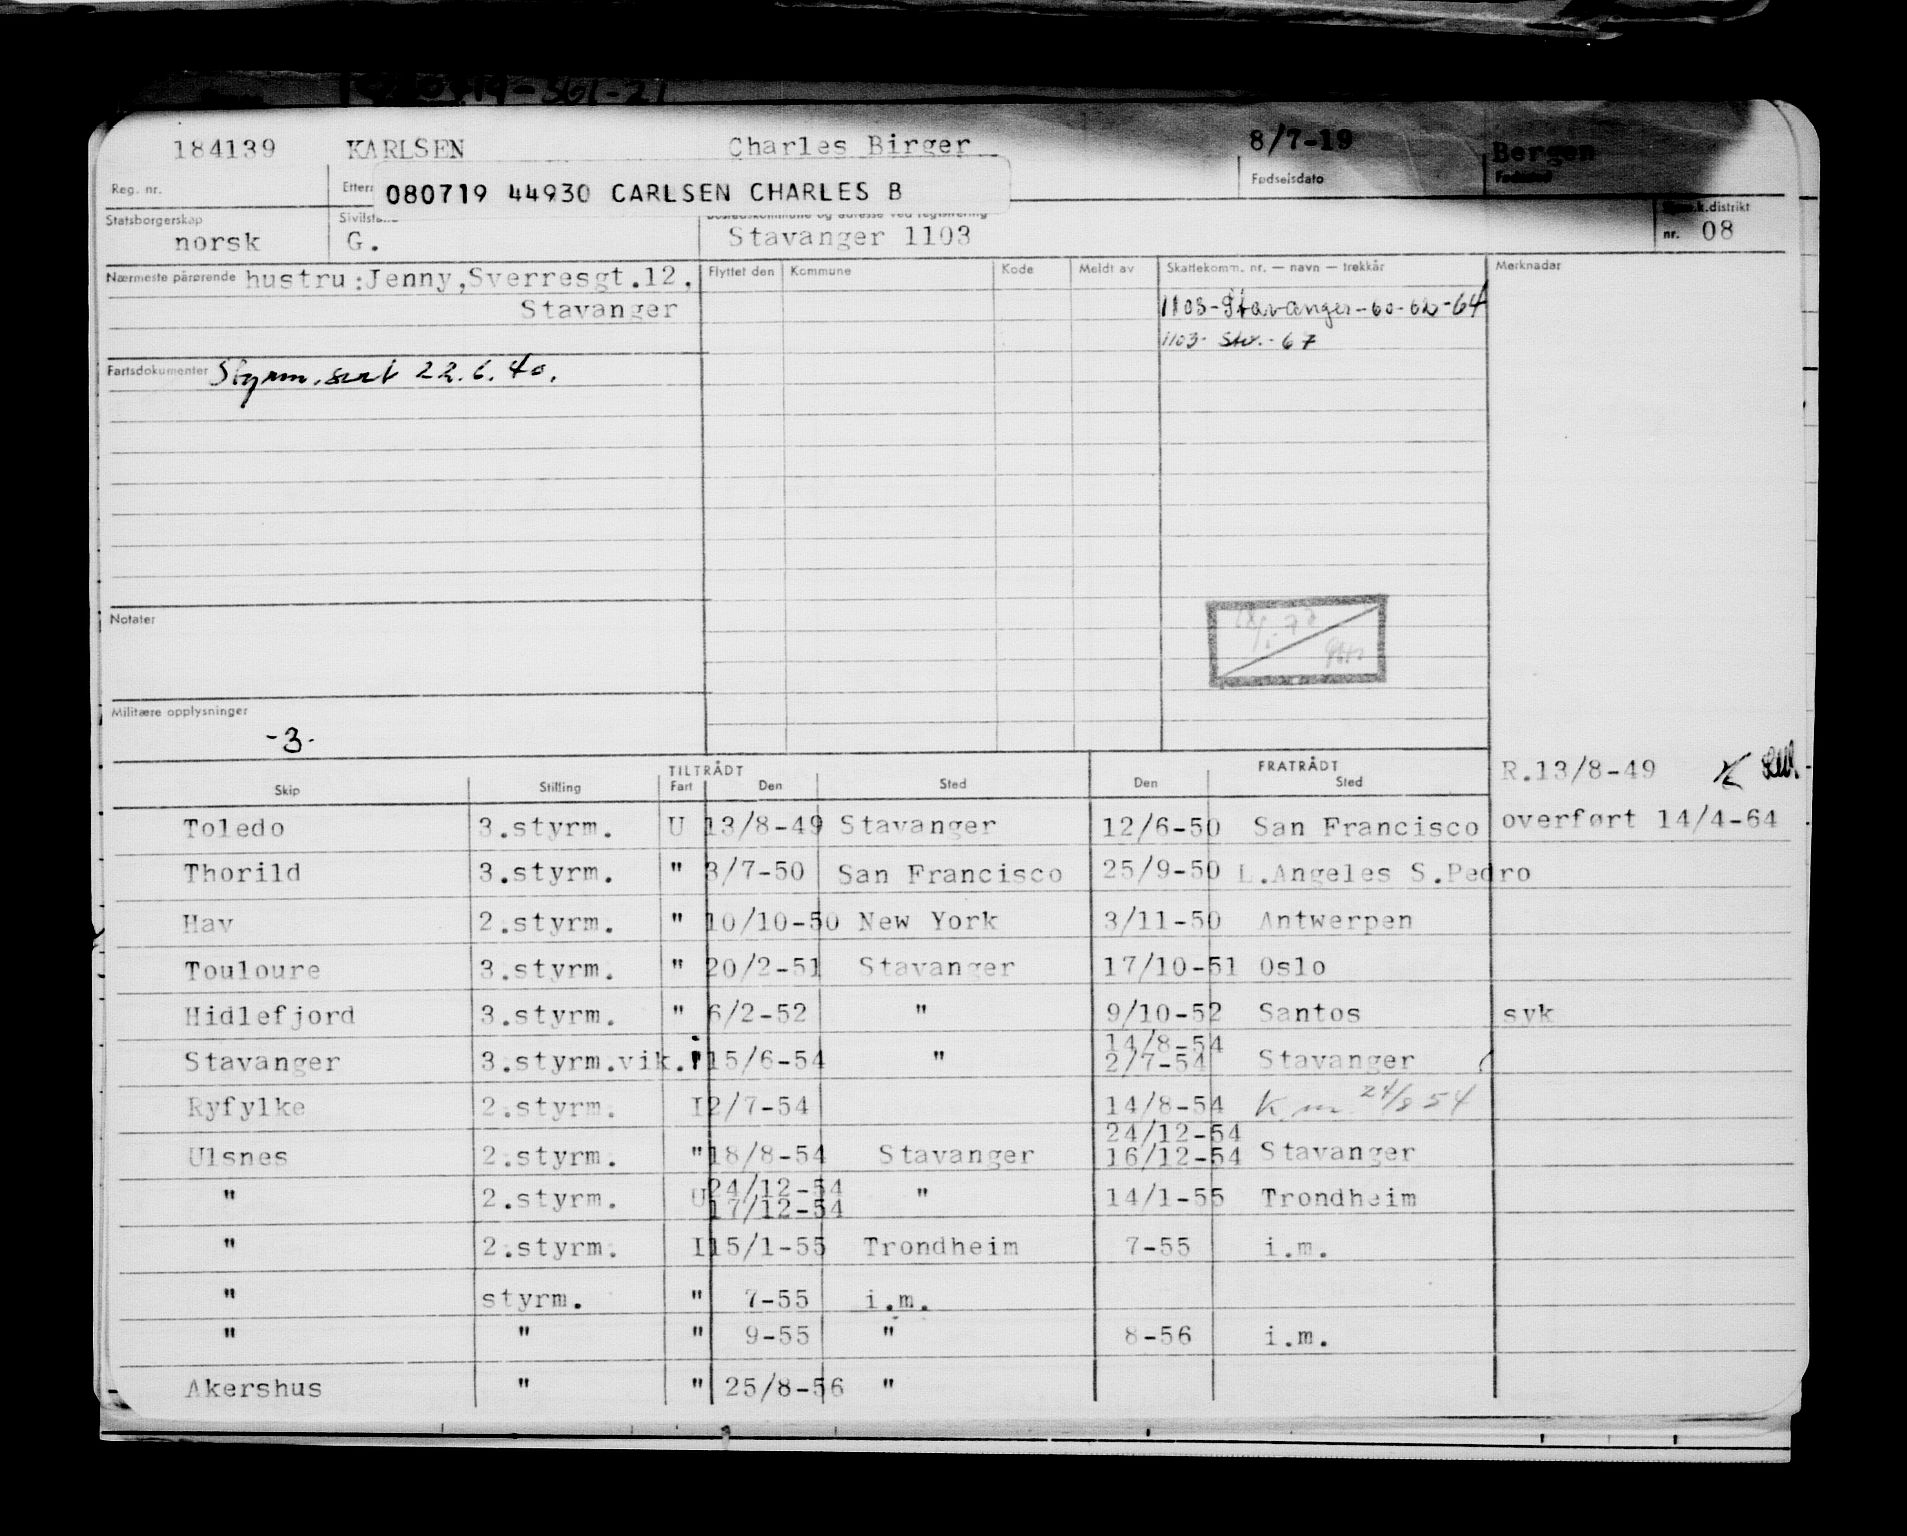 184139 KARLSEN Charles Birger 8/7-19 Bergen
Reg. nr. Fødselsdato
080719 44930 CARLSEN CHARLES B
Statsborgerskap Bostedskommune og adresse ved registrering
norsk G. Stavanger 1103 nr. 08
Nærmeste pårørende hustru:Jenny,Sverresgt.12, Flyttet den Kommune Kode Meldt av Skattekomm. nr. — navn — trekkår Merknader
Stavanger 1103-Stavanger-60-62-64
1103- Stv.-67
Fartsdokumenter Styrm.sert 22.6.40.
Notater
Militære opplysninger
-3-
TILTRÅDT FRATRÅDT R.13/8-49
Skip Stilling Fart Den Sted Den Sted
Toledo 3.styrm. U 13/8-49 Stavanger 12/6-50 San Francisco overført 14/4-64
Thorild 3.styrm. " 3/7-50 San Francisco 25/9-50 L.Angeles S.Pedro
Hav 2.styrm. " 10/10-50 New York 3/11-50 Antwerpen
Touloure 3.styrm. " 20/2-51 Stavanger 17/10-51 Oslo
Hidlefjord 3.styrm. " 6/2-52 " 9/10-52 Santos syk
14/8-54
Stavanger 3.styrm.vik. 15/6-54 " 2/7-54 Stavanger
Ryfylke 2.styrm. I 2/7-54 14/8-54 K.m. 24/8 54
24/12-54
Ulsnes 2.styrm. " 18/8-54 Stavanger 16/12-54 Stavanger
24/12-54
" 2.styrm. U 17/12-54 " 14/1-55 Trondheim
" 2.styrm. I 15/1-55 Trondheim 7-55 i.m.
" styrm. " 7-55 i.m.
" " " 9-55 " 8-56 i.m.
Akershus " " 25/8-56 "